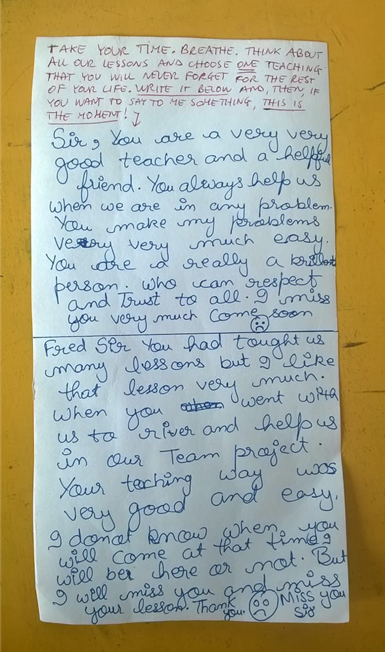 TAKE YOUR TIME. BREATHE. THINK ABOUT
ALL OUR LESSONS AND CHOOSE ONE TEACHING
THAT YOU WILL NEVER FORGET FOR THE REST
OF YOUR LIFE. WRITE IT BELOW AND, THEN, IF
YOU WANT TO SAY TO ME SOMETHING, THIS IS
THE MOMENT!
Sir, You are a very very
good teacher and a helpful
friend. You always help us
when we are in any problem.
You make my problems
very very much easy.
You are a really a
person. who can respect
and Trust to all. I miss
you very much Come soon
Fred Sir You had tought us
many lessons but I like
that lesson very much.
when you went with
us to river and help us
in our Team project.
Your teching way was
very good and easy.
I donot know when you
will come at that time I
will ber here or not. But
I will miss you and miss
your lesson. Thank you. Miss you
Sir